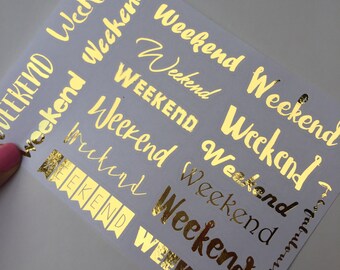 Weekend
Weekend
Weekend
Weekend
WEEKEND
Weekend
WEEKEND
Weekend
Weekend
Weekend
Weekend
Weekend
Weekend
Weekend
WEEKEND
Weekend